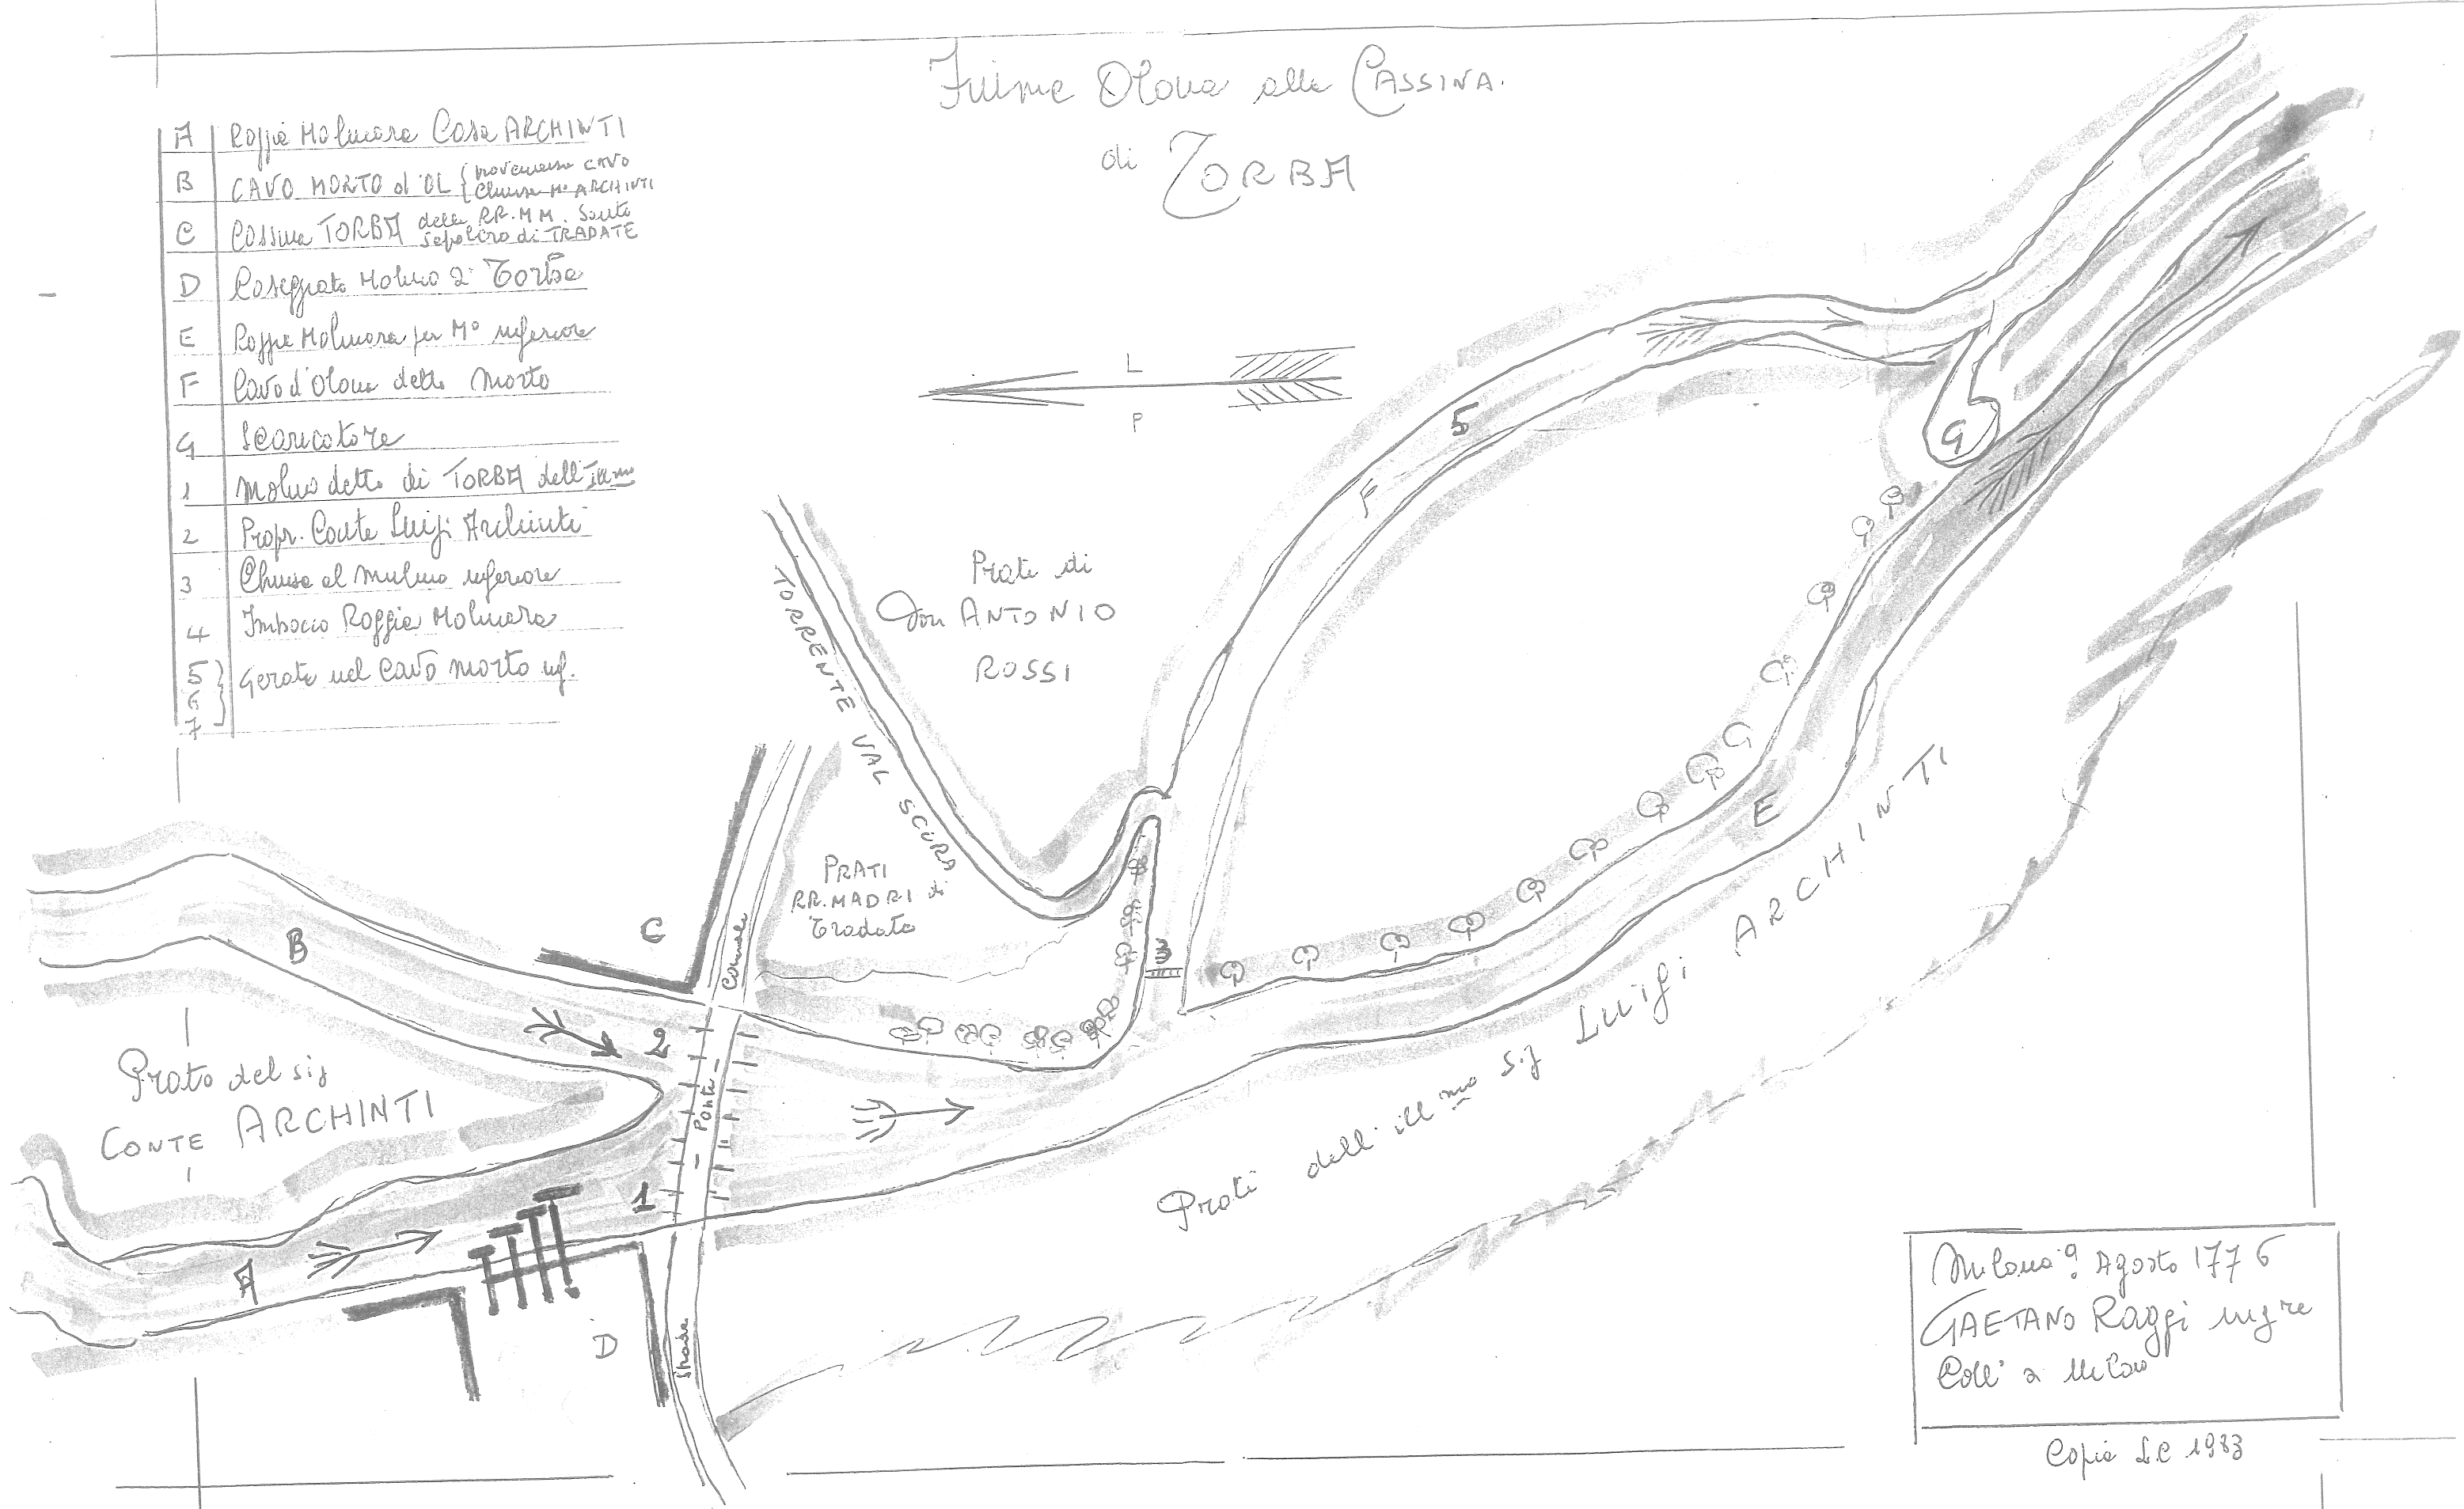 Fiume Olona alla CASSINA.
di TORBA
A Roggia Molinara Casa ARCHINTI
B CAVO MORTO d'OL { proveniente CAVO
Chiusa Mº ARCHINTI
C Cassina TORBA delle RR. MM. Santo
Sepolcro di TRADATE
D Caseggiato Molino di Torba
E Roggia Molinara per Mº inferiore
F Cavo d'Olona detto Morto
G Scaricatore
1 Molino detto di TORBA dell'Ill.mo
2 Propr. Conte Luigi Archinti
3 Chiusa al Mulino inferiore
4 Imbocco Roggia Molinara
5 } Gerate nel Cavo Morto inf.
6
7
L
P
5
F
G
TORRENTE VAL SCURA
Prati di
Don ANTONIO
ROSSI
PRATI
RR. MADRI di
Tradate
E
B
C
Comunale
3
2
Ponte
1
Prato del sig
CONTE ARCHINTI
A
D
Strada
Prati dell'ill mo sig Luigi ARCHINTI
Milano 9 Agosto 1776
GAETANO Raggi ing re
Coll. a Milano
Copia L.C 1983